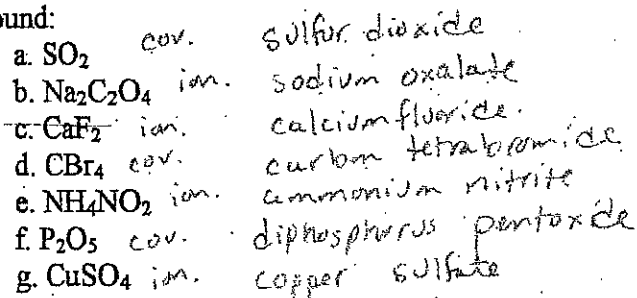 ound:
a. SO₂ cov. sulfur dioxide
b. Na₂C₂O₄ ion. sodium oxalate
c. CaF₂ ion. calcium fluoride.
d. CBr₄ cov. carbon tetrabromide
e. NH₄NO₂ ion. ammonium nitrite
f. P₂O₅ cov. diphosphorus pentoxide
g. CuSO₄ ion. copper sulfate